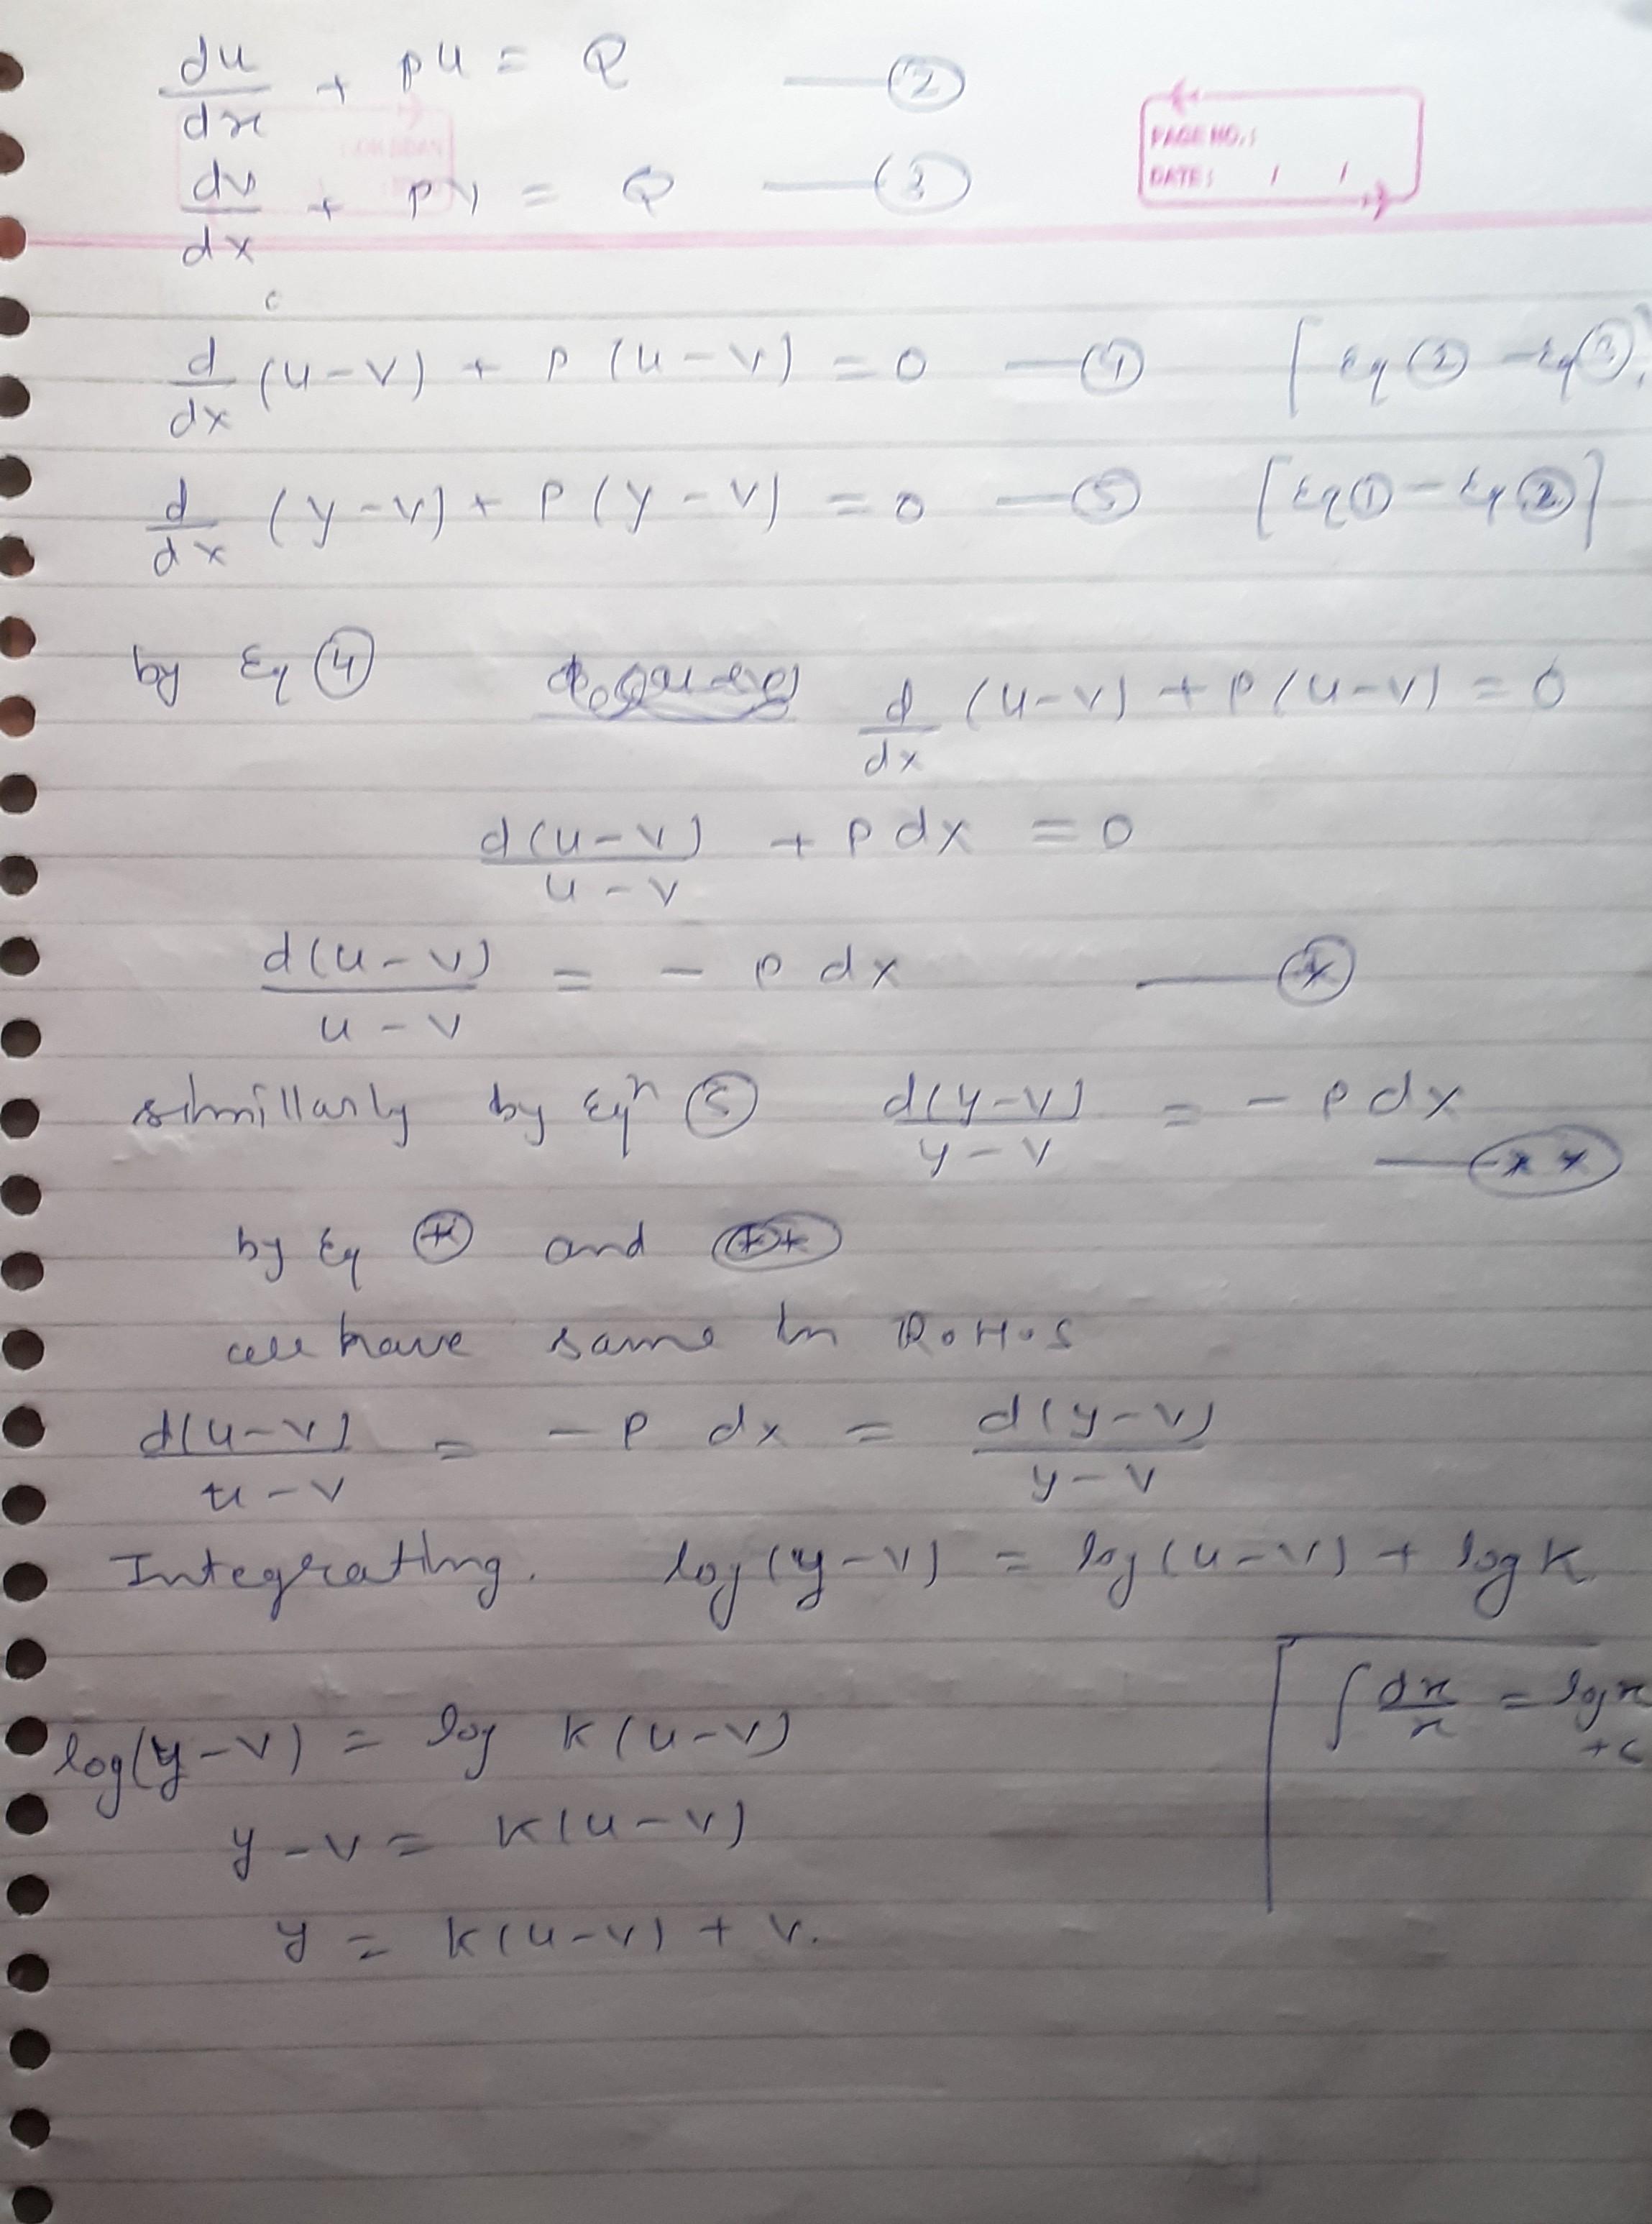 du/dx + pu = Q — (2)
PAGE NO.:
DATE: / /
dv/dx + pv = Q — (3)
d/dx (u-v) + P (u-v) = 0 — (4) [Eq (2) - Eq (3)]
d/dx (y-v) + P (y-v) = 0 — (5) [Eq (1) - Eq (2)]
by Eq (4) d/dx (u-v) + P (u-v) = 0
d(u-v)/u-v + P dx = 0
d(u-v)/u-v = - P dx — (*)
simillarly by Eqn (5) d(y-v)/y-v = - P dx — (**)
by Eq (*) and (**)
we have same in R.H.S
d(u-v)/u-v = - P dx = d(y-v)/y-v
Integrating. log(y-v) = log(u-v) + log K
∫ dx/x = log x + c
log(y-v) = log K(u-v)
y-v = K(u-v)
y = K(u-v) + v.